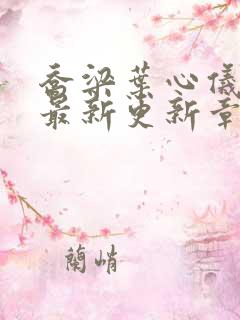 喬梁葉心儀
最新更新章
蘭峭